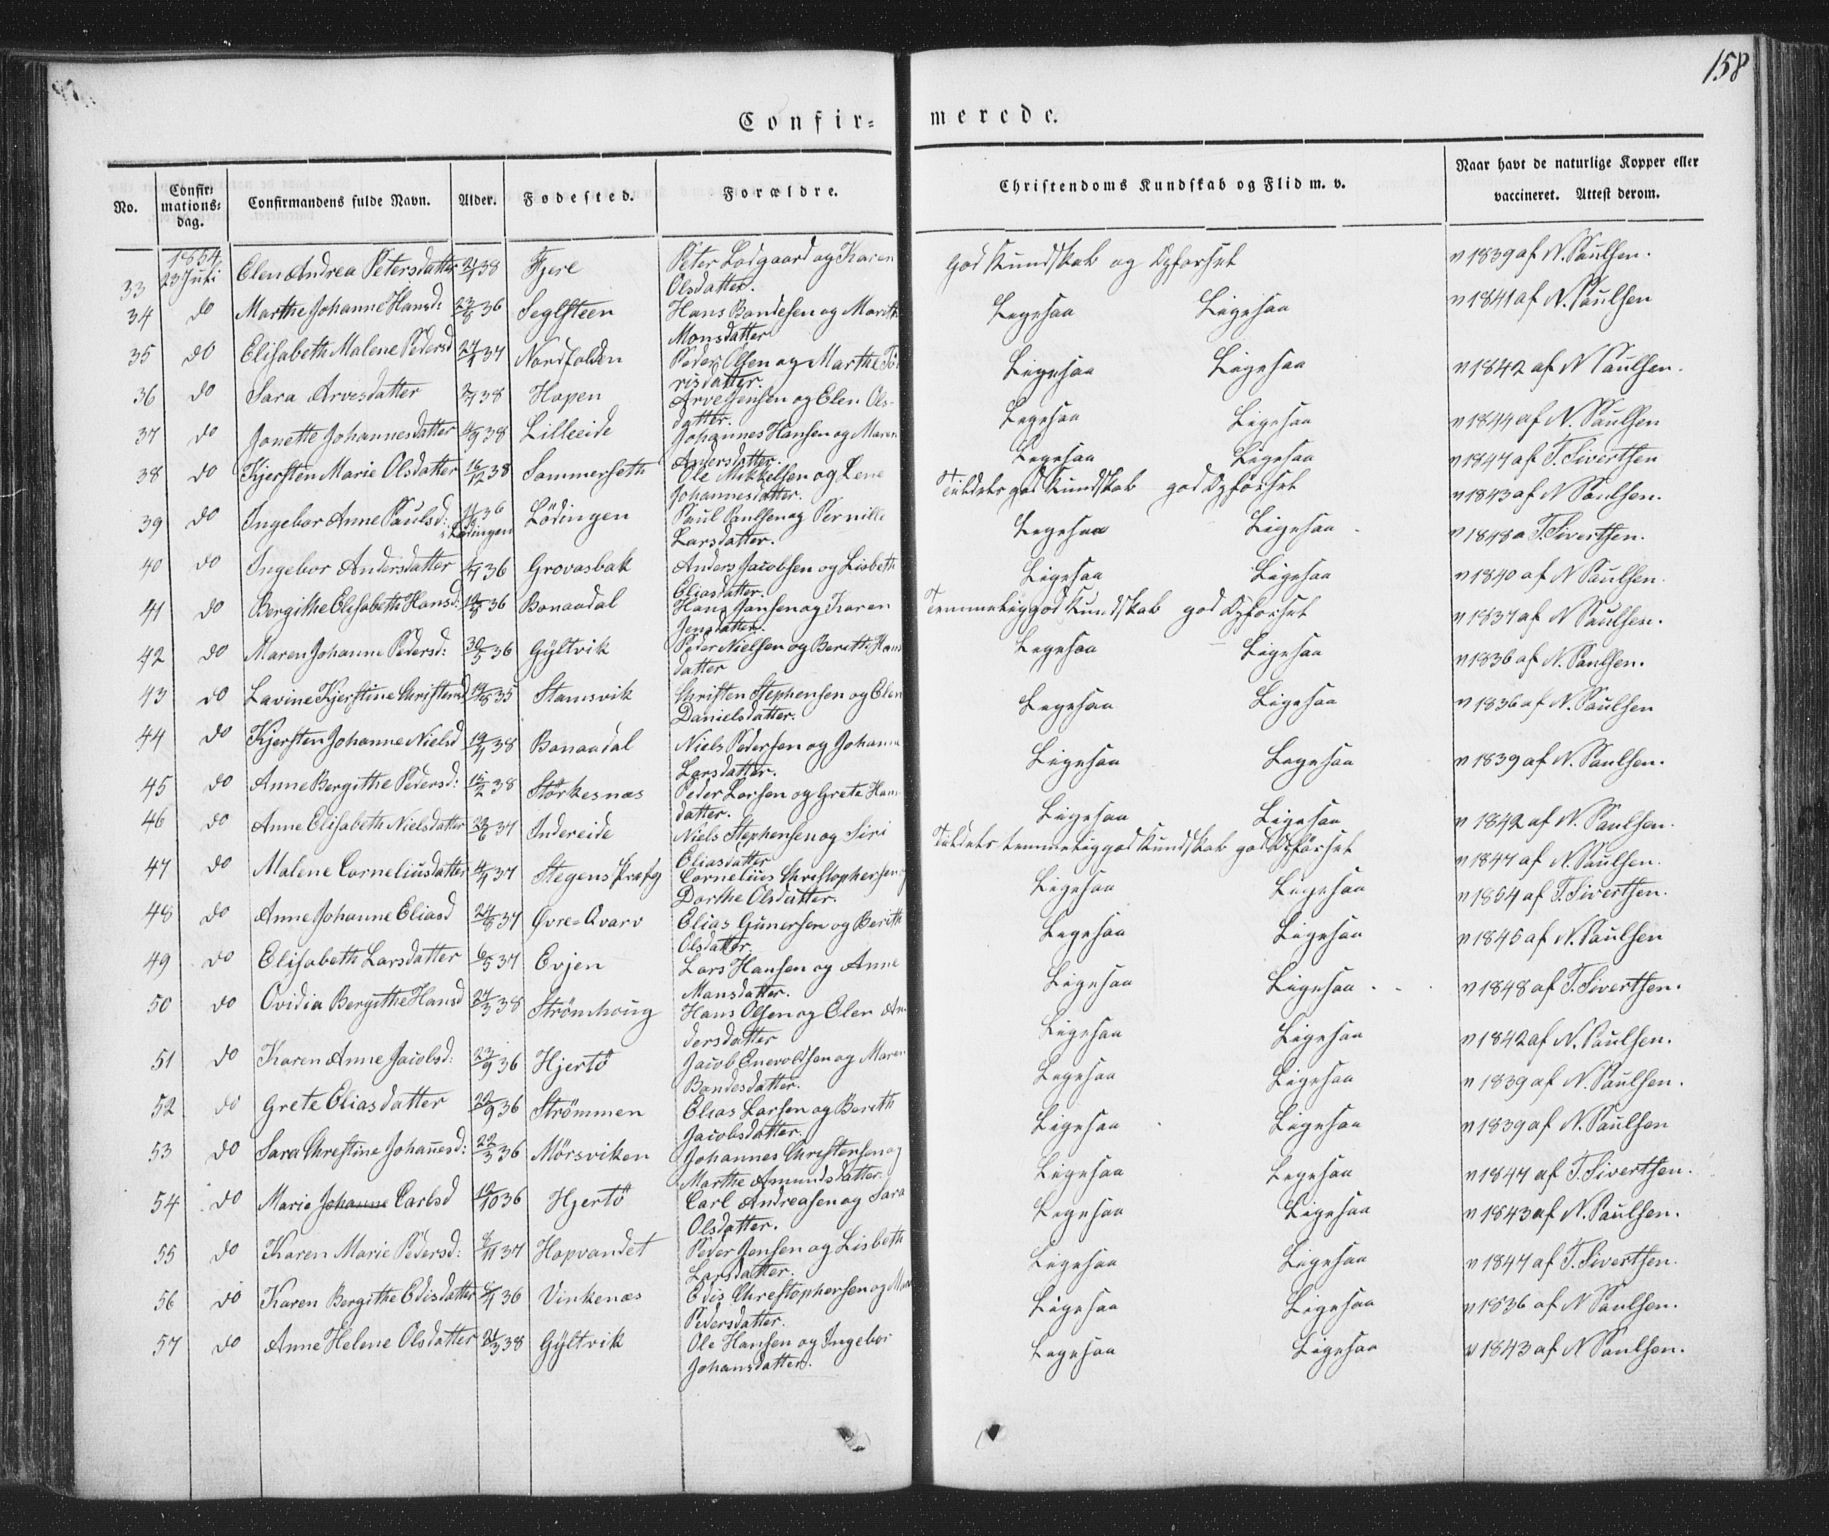 158
Confir- merede.
No.
Confirmations-dag.
Confirmandens fulde Navn.
Alder.
Fødested.
Forældre.
Christendoms Kundskab og Flid m. v.
Naar havt de naturlige Kopper eller
vaccineret. Attest derom.
1854
33 23 Juli Elen Andrea Petersdatter 38 Fjere Peter Lodgaard og Karen god Kundskab og Opførsel v 1839 af N. Paulsen.
Olsdatter.
34 do Marthe Johanne Hansd: 23/8 36 Seglsteen Hans Bantesen og Marith Ligesaa Ligesaa v 1841 af N. Paulsen
Monsdatter
35 do Elisabeth Malene Pedersd 37 Nordfolden Peder Olsen og Marthe To- Ligesaa Ligesaa v 1842 af N Paulsen.
risdatter.
36 do Sara Arvesdatter 38 Hopen Arve Jensen og Elen Ols- Ligesaa Ligesaa v 1844 af N. Paulsen
datter.
37 do Jonette Johannesdatter 38 Lilleeide Johannes Hansen og Maren Ligesaa Ligesaa v 1847 af T. Sivertsen
Andersdatter.
38 do Kjersten Marie Olsdatter 16/12 38 Sommerseth Ole Mikkelsen og Lene Tildels god Kundskab god Opførsel v 1843 af N Paulsen.
Johannesdatter.
39 do Ingebor Anne Paulsd: 36 Lödingen Paul Paulsen og Pernille Ligesaa Ligesaa v 1848 a T. Sivertsen.
i Lödingen Larsdatter.
40 do Ingebor Andersdatter 36 Grovasbak Anders Jacobsen og Lisbeth Ligesaa Ligesaa v 1840 af N Paulsen.
Eliasdatter.
41 do Bergithe Elisabeth Hansd: 36 Bonaadal Hans Jansen og Karen Temmelig god Kundskab god Opførsel v 1837 af N Paulsen.
Jensdatter.
42 do Maren Johanne Pedersd: 30/5 36 Gyltvik Peder Nielsen og Berith Hans Ligesaa Ligesaa v 1836 af N. Paulsen.
datter
43 do Lavine Kjerstine Christensd 19/8 35 Stamsvik Christen Stephensen og Elen Ligesaa Ligesaa v 1836 af N. Paulsen
Danielsdatter.
44 do Kjersten Johanne Nielsd 38 Bonaadal Niels Pedersen og Johanne Ligesaa Ligesaa v 1839 af N. Paulsen.
Larsdatter.
45 do Anne Bergithe Pedersd: 15/2 38 Störkesnæs Peder Larsen og Grete Hans- Ligesaa Ligesaa v 1842 af N. Paulsen.
datter.
46 do Anne Elisabeth Nielsdatter 37 Indereide Niels Stephensen og Siri Tildels temmelig god Kundskab god Opførsel v 1847 af N. Paulsen.
Eliasdatter
47 do Malene Corneliusdatter 37 Stegens Præfg Cornelius Christophersen og Ligesaa Ligesaa v 1854 af T. Sivertsen.
Dorthe Olsdatter.
48 do Anne Johanne Eliasd 24/8 37 Øvre-Qvarv Elias Gunersen og Berith Ligesaa Ligesaa v 1845 af N. Paulsen
Olsdatter
49 do Elisabeth Larsdatter 6/5 37 Evjen Lars Hansen og Anne Ligesaa Ligesaa v 1848 af T. Sivertsen.
Mansdatter.
50 do Ovidia Bergithe Hansd 27/3 38 Strömhoug Hans Olsen og Elen An- Ligesaa Ligesaa v 1842 af N. Paulsen.
dersdatter
51 do Karen Anne Jacobsd: 23/9 36 Hjertö Jacob Enevoldsen og Maren Ligesaa Ligesaa v 1839 af N. Paulsen.
Bandesdatter.
52 do Grete Eliasdatter 36 Strömmen Elias Larsen og Berith Ligesaa Ligesaa v 1839 af N. Paulsen
Jacobsdatter.
53 do Sara Christine Johannesd: 22/3 36 Mörsviken Johannes Christensen og Ligesaa Ligesaa v 1847 af T. Sivertsen.
Marthe Amundsdatter
54 do Marie Johanne Carlsd 36 Hjertö Carl Andreasen og Sara Ligesaa Ligesaa v 1843 af N. Paulsen.
Olsdatter.
55 do Karen Marie Pedersd: 37 Hopvandet Peder Jensen og Lisbeth Ligesaa Ligesaa v 1847 af T. Sivertsen.
Larsdatter.
56 do Karen Bergithe Edisdatter 36 Vinkenæs Edis Christophersen og Ligesaa Ligesaa v 1836 af N Paulsen.
Pedersdatter.
57 do Anne Helene Olsdatter 38 Gyltvik Ole Hansen og Ingebor Ligesaa Ligesaa v 1843 af N Paulsen.
Johansdatter.